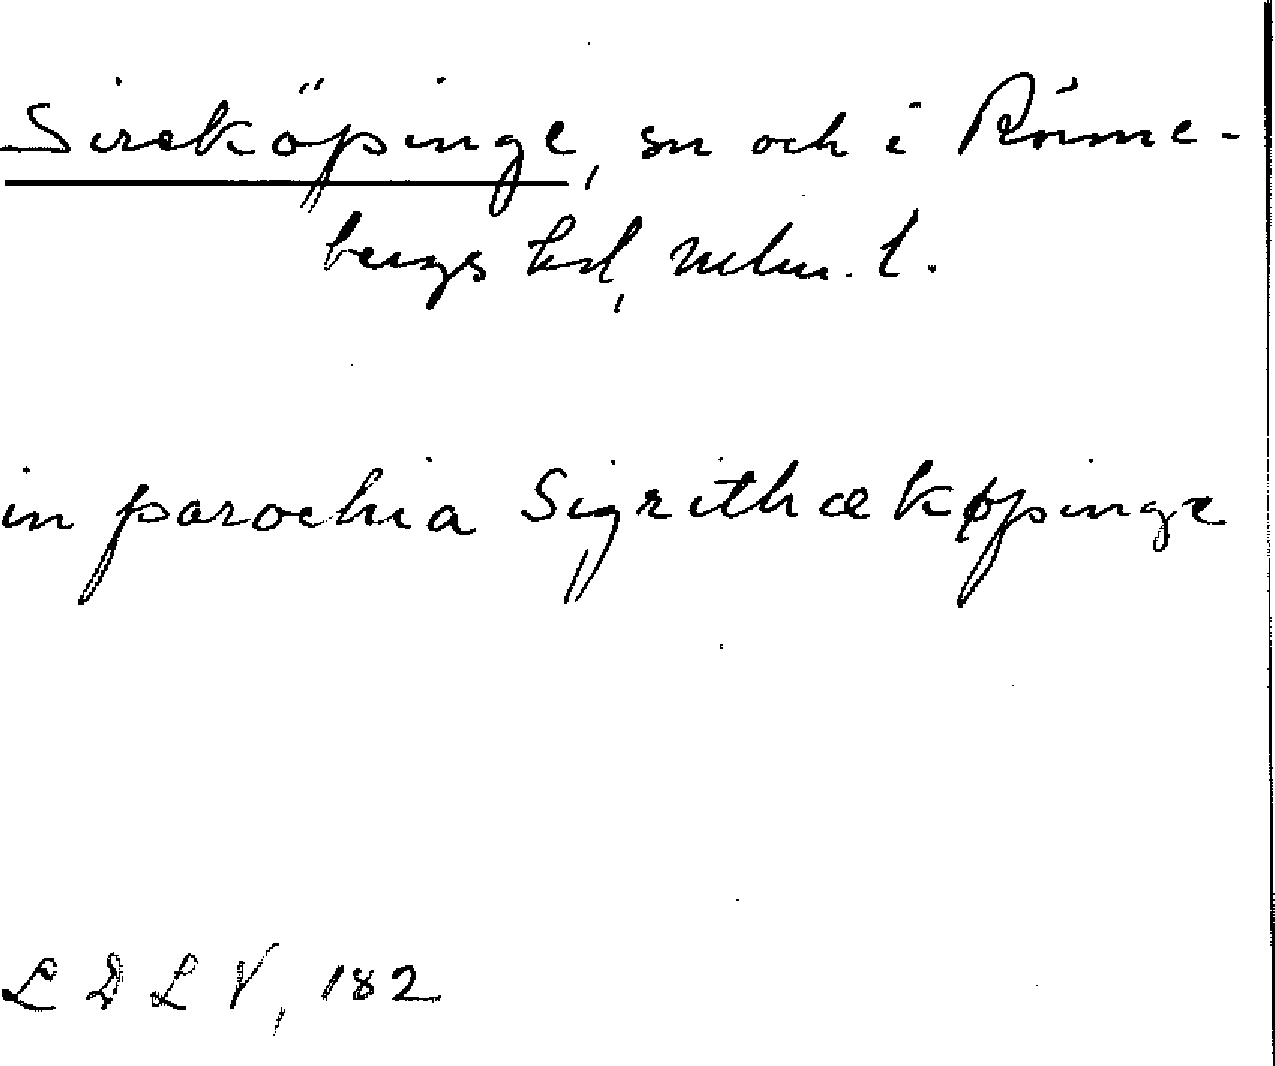 Sireköpinge, sn och i Rönne-
bergs hd, Mlm. l.
in parochia Sigrithækøpinge
L D L V, 182